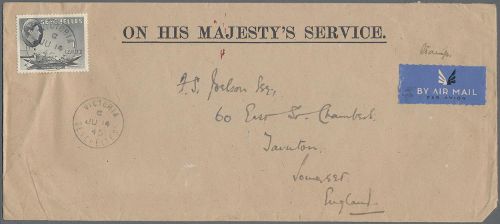 SEYCHELLES
ON HIS MAJESTY'S SERVICE.
BY AIR MAIL
PAR AVION
VICTORIA
C
JU 14
45
SEYCHELLES
60 East St. Chambers
Taunton
Somerset
England